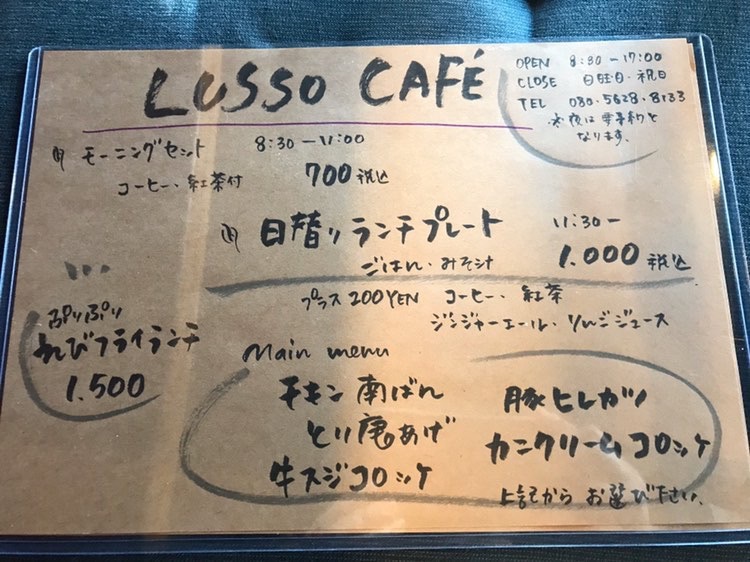 LUSSO CAFÉ
OPEN 8:30〜17:00
CLOSE 日曜日・祝日
TEL 080・5628・8133
※夜は要予約と
なります。
モーニングセット 8:30〜11:00
コーヒー・紅茶付 700税込
日替りランチプレート 11:30〜
ごはん・みそ汁 1.000税込
プラス200YEN コーヒー・紅茶
ジンジャーエール・りんごジュース
ぷりぷり
えびフライランチ
1.500
Main menu
チキン南ばん
とり唐あげ
牛スジコロッケ
豚ヒレカツ
カニクリームコロッケ
上記からお選び下さい。